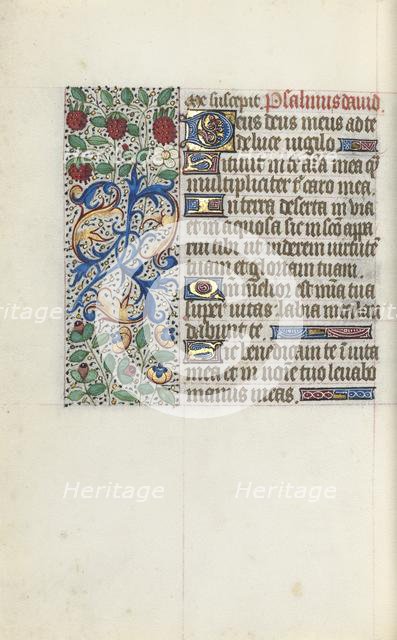 me suscepit. Psalmus david.
Deus deus meus ad te
de luce vigilo
Sitiuit in te aīa mea q̄
multipliciter t̄ caro mea.
In terra deserta in via
et in aquosa sic in sc̄o appa
rui tibi ut viderem uirtutē
tuam et gloriam tuam.
Qm̄ melior est mīa tua
super uitas labia mea lau
dabunt te.
Sic benedicam te ī uita
mea et in noīe tuo leuabo
manus meas.
Heritage Heritage
Heritage Heritage
Heritage Heritage